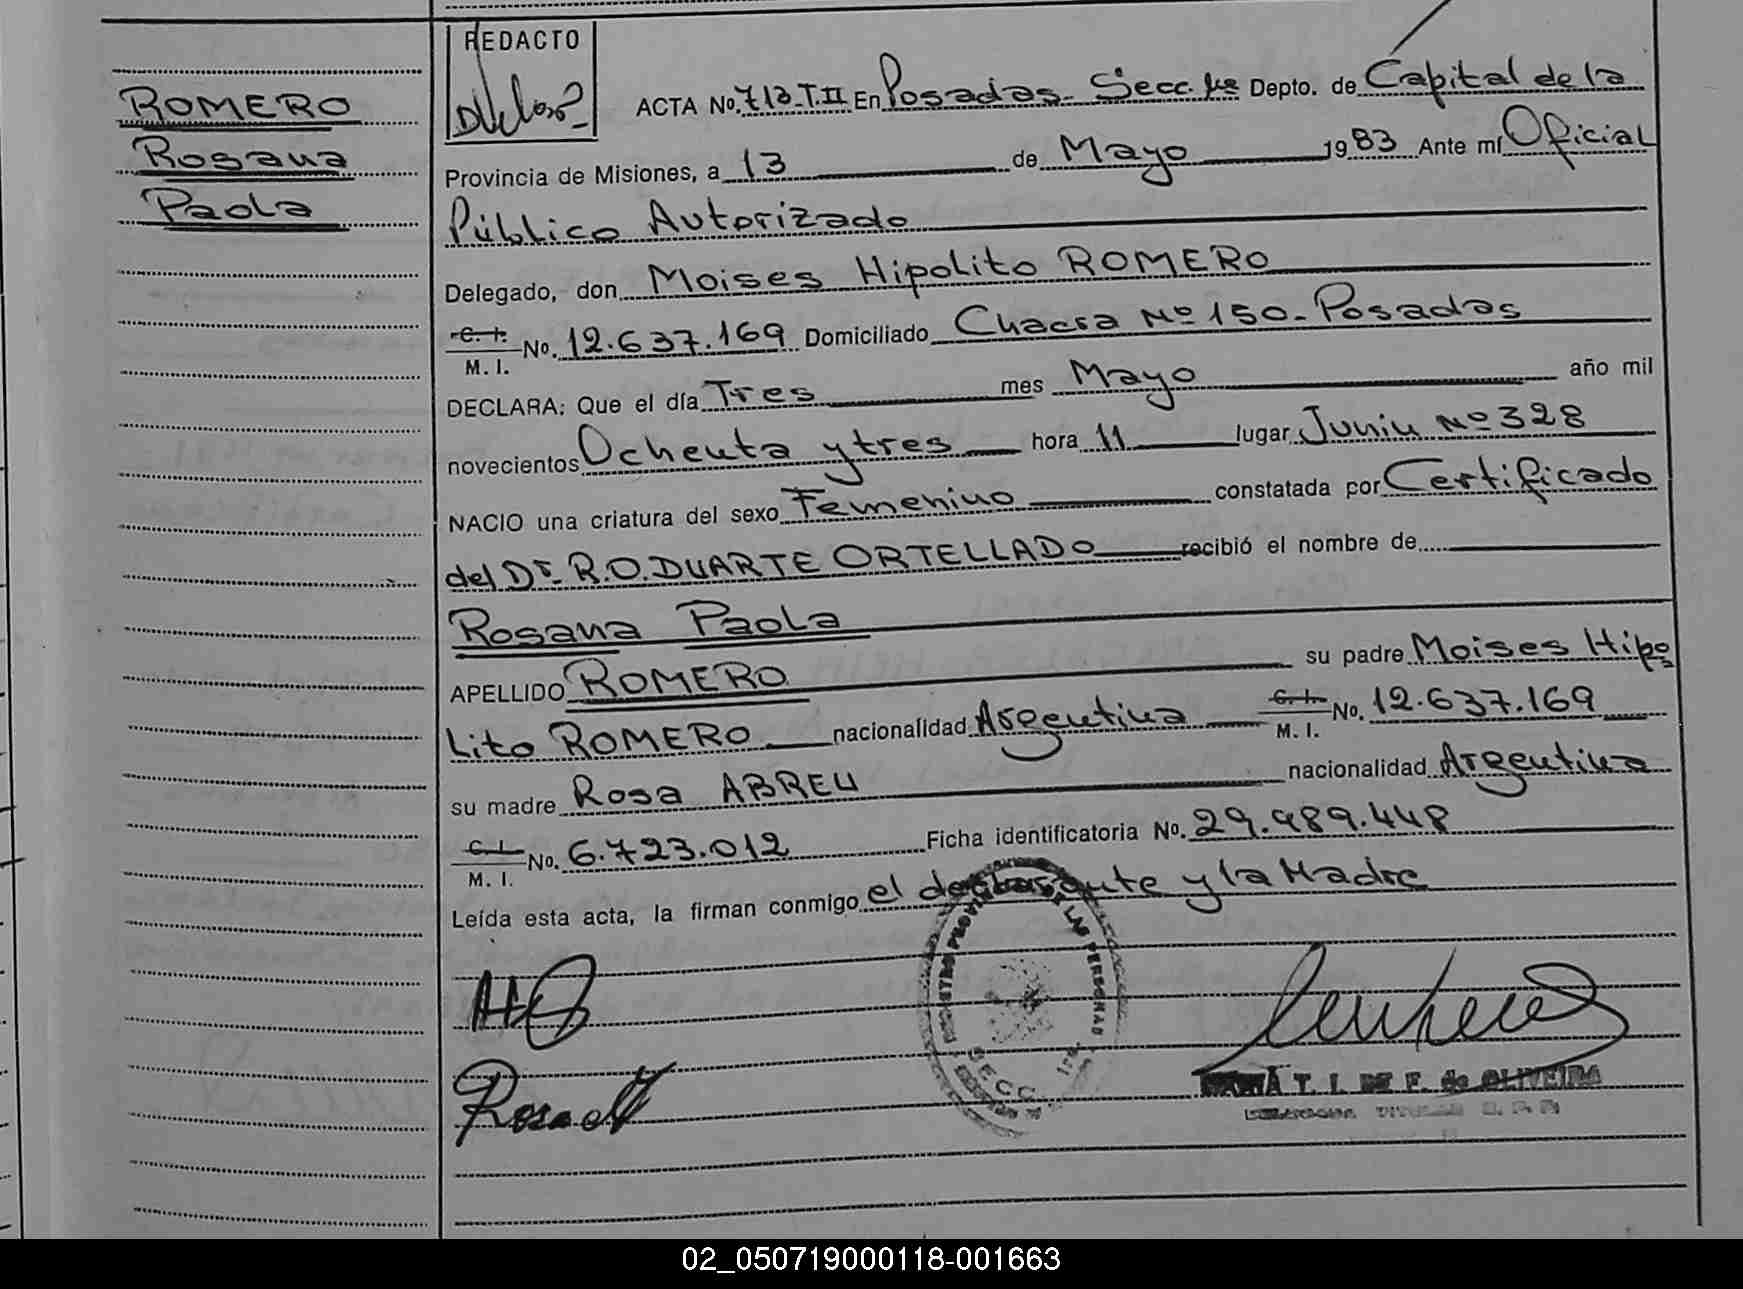 ROMERO
Rosana
Paola
REDACTO
ACTA No. 713-T.II En Posadas- Secc. 1ra Depto. de Capital de la
Provincia de Misiones, a 13 de Mayo 1983 Ante mí Oficial
Público Autorizado
Delegado, don Moises Hipolito ROMERO
C. I. M. I. No. 12.637.169 Domiciliado Chacra Nº 150- Posadas
DECLARA: Que el día Tres mes Mayo año mil
novecientos Ochenta y tres hora 11 lugar Junin Nº 328
NACIO una criatura del sexo Femenino constatada por Certificado
del Dr. R.O. DUARTE ORTELLADO recibió el nombre de
Rosana Paola
APELLIDO ROMERO su padre Moises Hipo
Lito ROMERO nacionalidad Argentina C. I. M. I. No. 12.637.169
su madre Rosa ABREU nacionalidad Argentina
C. I. M. I. No. 6.723.012 Ficha identificatoria No. 29.989.448
Leída esta acta, la firman conmigo el declarante y la Madre
REGISTRO PROVINCIAL DE LAS PERSONAS
SECC. 1ra
T. I. DE F. de OLIVEIRA
02_050719000118-001663